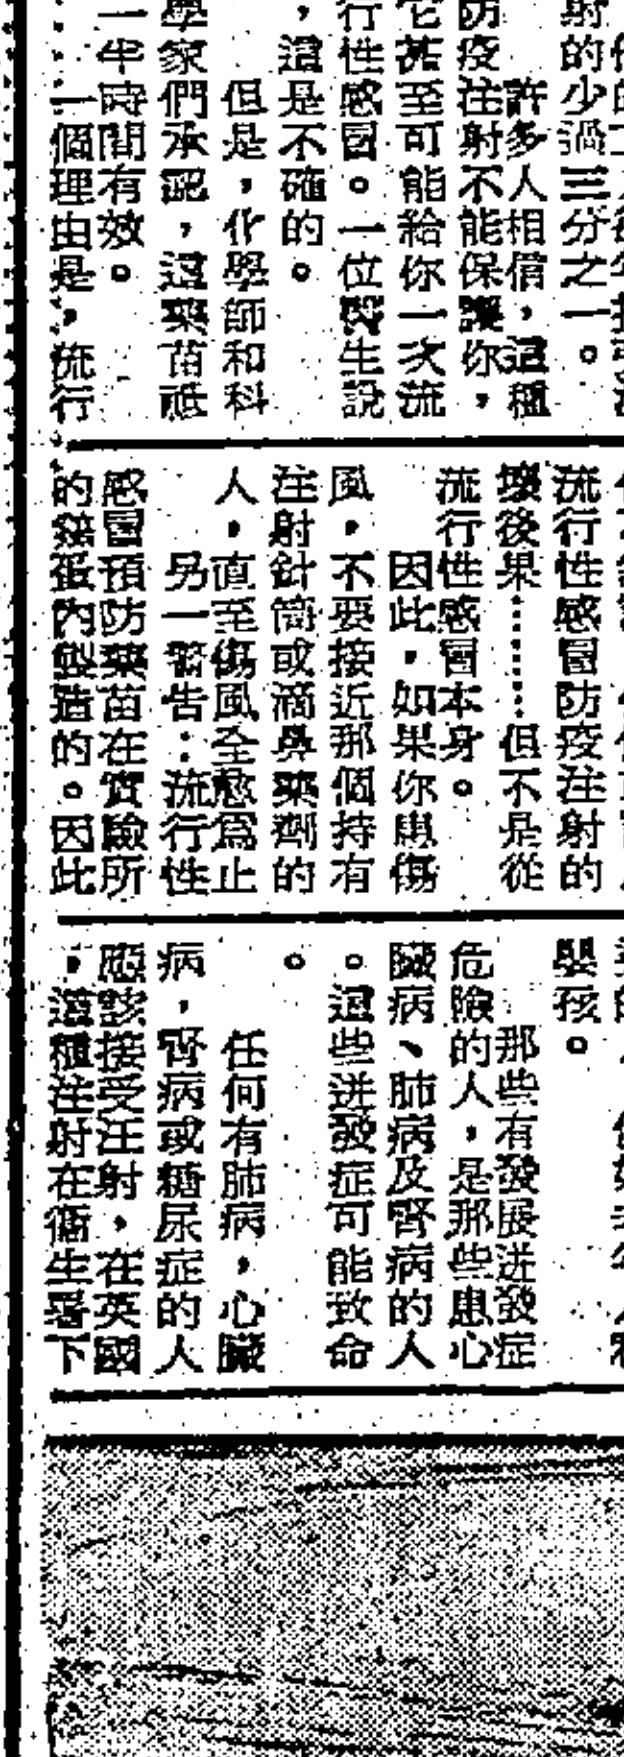 射的少過三分之一。
許多人相信，這種
防疫注射不能保護你，
它甚至可能給你一次流
行性感冒。一位醫生說
，這是不確的。
但是，化學師和科
學家們承認，這藥苗祗
一半時間有效。
一個理由是，流行
流行性感冒防疫注射的
壞後果………但不是從
流行性感冒本身。
因此，如果你患傷
風，不要接近那個持有
注射針筒或滴鼻藥劑的
人，直至傷風全愈為止
另一警告：流行性
感冒預防藥苗在實驗所
的雞蛋內製造的。因此
嬰孩。
那些有發展迸發症
危險的人，是那些患心
臟病、肺病及腎病的人
。這些迸發症可能致命
。
任何有肺病，心臟
病，腎病或糖尿症的人
應該接受注射，在英國
，這種注射在衞生署下